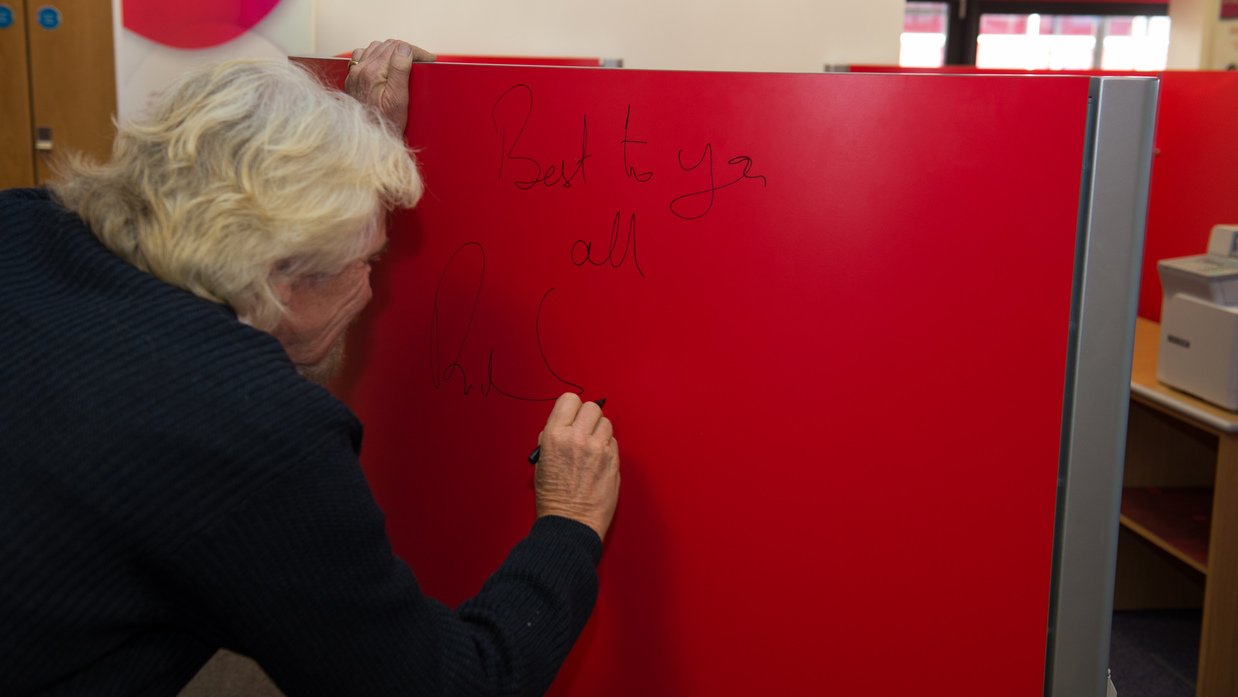 Best to you
all